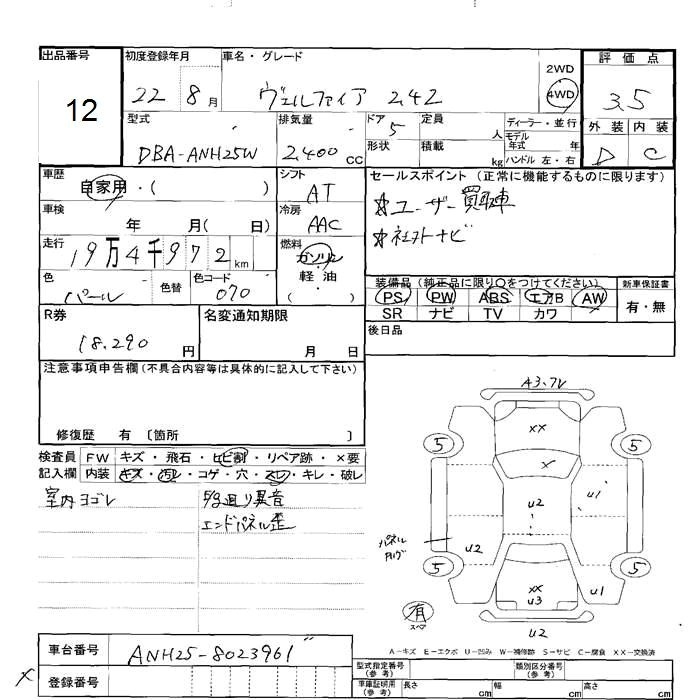 出品番号
12
初度登録年月
22 8月
車名・グレード
ヴェルファイア 2.4Z
2WD
4WD
評価点
3.5
外装 内装
D C
型式
DBA-ANH25W
排気量
2,400 CC
ドア
5
形状
定員
人
積載
kg
ディーラー・並行
モデル
年式 年
ハンドル 左・右
車歴
自家用・( )
シフト
AT
車検
年 月( 日)
冷房
AAC
走行
19万4千972km
燃料
ガソリン
軽・油
( )
色
パール
色替
色コード
070
セールスポイント (正常に機能するものに限ります)
☆ユーザー買取車
☆社外ナビ
装備品 (純正品に限り○をつけてください)
PS PW ABS エアB AW
SR ナビ TV カワ
新車保証書
有・無
後日品
R券
18,290 円
名変通知期限
月 日
注意事項申告欄 (不具合内容等は具体的に記入して下さい)
修復歴 有 〔箇所 〕
検査員
記入欄
FW キズ・飛石・ヒビ割・リペア跡・×要
内装 キズ・汚レ・コゲ・穴・スレ・キレ・破レ
室内ヨゴレ
異音
エンドパネル歪
A3.7V
XX
X
5 5
U2
U1
パネル
U2
5 5
XX
U3
U1
有
スペア
U2
A-キズ E-エクボ U-凹み W-補修跡 S-サビ C-腐食 XX-交換済
車台番号
ANH25-8023961
登録番号
X
型式指定番号
(参考)
類別区分番号
(参考)
車庫証明用
(参考)
長さ cm 幅 cm 高さ cm